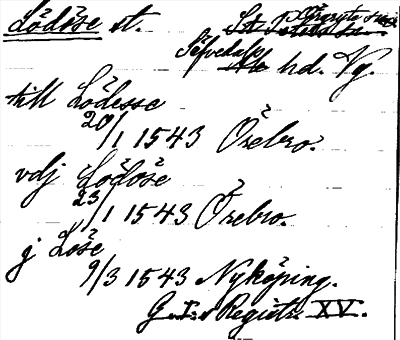 Lödöse st.
Sävedals hd. Vg.
till Lödesse
20/1 1543 Örebro.
vdj Lödöse
23/1 1543 Örebro.
j Löse
9/3 1543 Nyköping.
G. I:s Registr. XV.